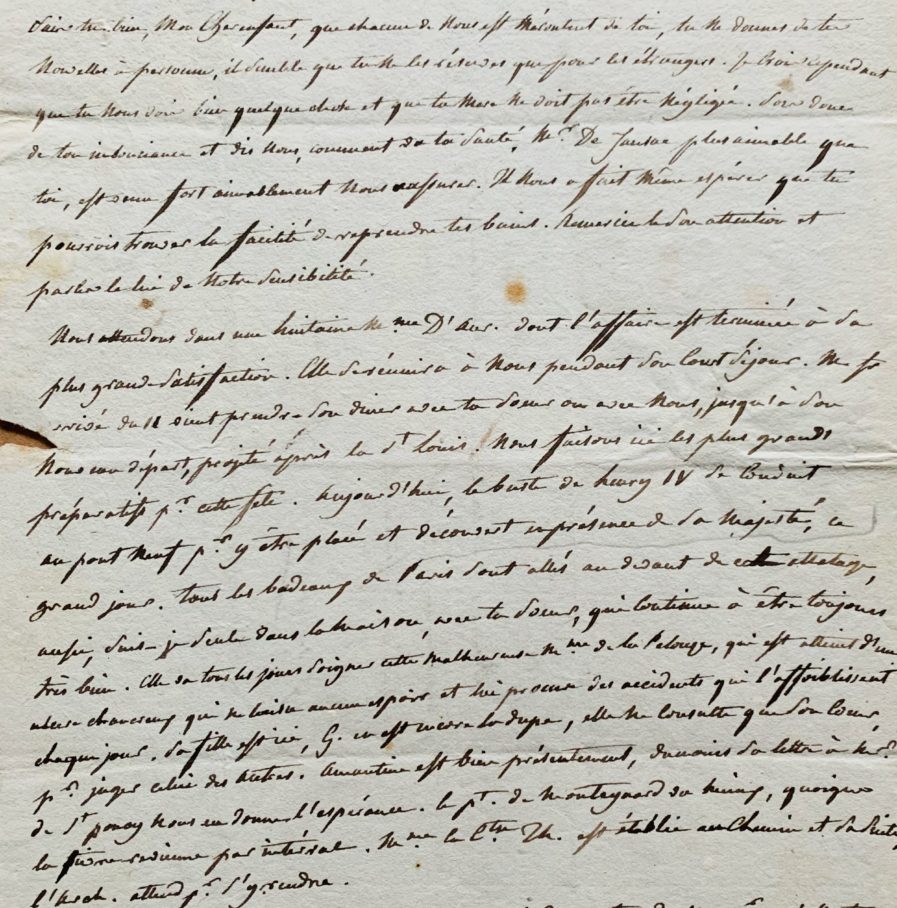 Sais tu bien, Mon Cher enfant, que chacun de Nous est Mécontent de toi, tu ne donnes de tes
Nouvelles à personne, il semble que tu ne les réserves que pour les étrangers. Je Crois cependant
que tu Nous dois bien quelque chose et que ta Mere ne doit pas être Négligée. Sors donc
de ton insouciance et dis Nous, comment va ta Santé, Mr. De Jansac plus aimable que
toi, est venu fort aimablement Nous rassurer. Il Nous a fait Même espérer que tu
pourrois trouver la facilité de reprendre tes bains. Remercie le de son attention et
parles le lui de Notre Sensibilité.
Nous attendons dans une huitaine Mme D'Aur. dont l'affaire est terminée à sa
plus grande Satisfaction. Elle se réunira à Nous pendant son Court Séjour. Mr
arrivé du 11 vient prendre son diner avec ta Soeur ou avec Nous, jusqu'à son
Nouveau départ, projeté après la St. Louis. Nous faisons ici les plus grands
préparatifs pr. cette fête. Aujourd'hui, le buste de henry IV se Conduit
au pont Neuf pr. y être placé et découvert en présence de Sa Majesté, ce
grand jour. Tous les badeaux de Paris Sont allés au devant de cet attelage,
aussi, Suis-je Seule dans la Maison, avec ta Soeur, qui Continue à être toujours
très bien. Elle va tous les jours Soigner cette Malheureuse Mme de la Pelouze, qui est atteint d'un
ulcere chancreux qui ne laisse aucun espoir et lui procure des accidents qui l'affoiblissent
chaque jour. Sa fille est ici, G. en est encore la dupe, elle ne Consulte que Son Coeur
pr. juger celui des Autres. Amantine est bien présentement, du moins Sa lettre à Mr.
de St. poncy Nous en donne l'espérance. le pt. de Monteynard va Mieux, quoique
la fievre revienne par interval. Mme la Ctsse Th. est établie au Chemin et Sa Suite,
l'Arch. attend pr. S'y rendre.